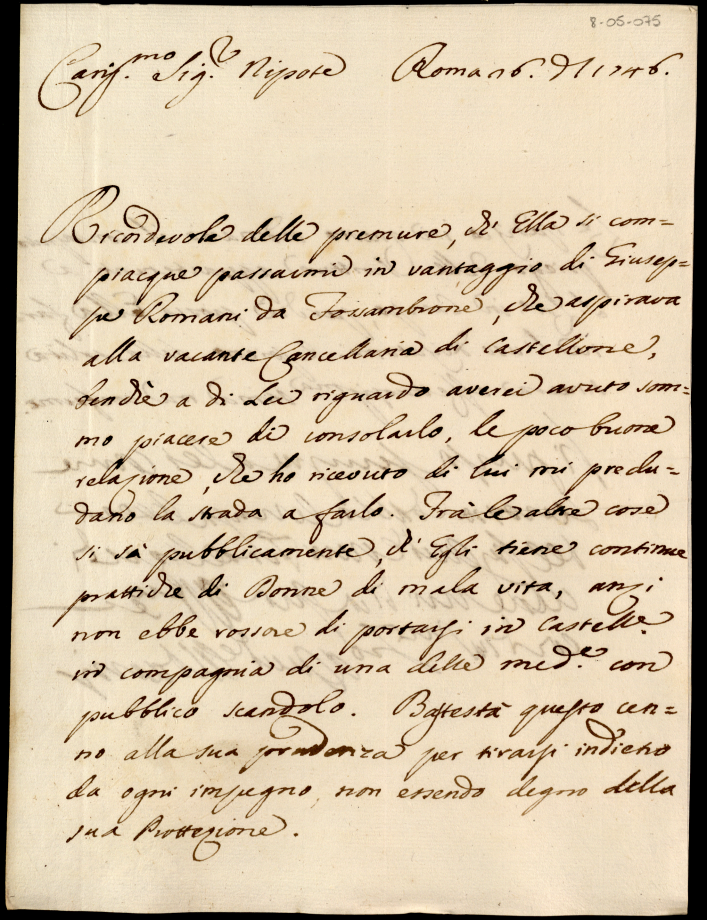 8-05-075
Cariss.mo Sig.r Nipote Roma 16. 1746.
Ricordevole delle premure, ch' Ella si com=
piacque passarmi in vantaggio di Giusep=
pe Romani da Fossambrone, che aspirava
alla vacante Cancellaria di Castellione,
benchè a di Lei riguardo averei avuto som=
mo piacere di consolarlo, le poco buone
relazione, che ho ricevuto di lui mi preclu=
dano la strada a farlo. Frà le altre cose
si sà pubblicamente, ch' Egli tiene continue
prattiche di Donne di mala vita, anzi
non ebbe rossore di portarsi in Castelle.
in compagnia di una delle med.e con
pubblico scandolo. Basterà questo cen=
no alla sua prudenza per tirarsi indietro
da ogni impegno, non essendo degno della
sua Protezione.